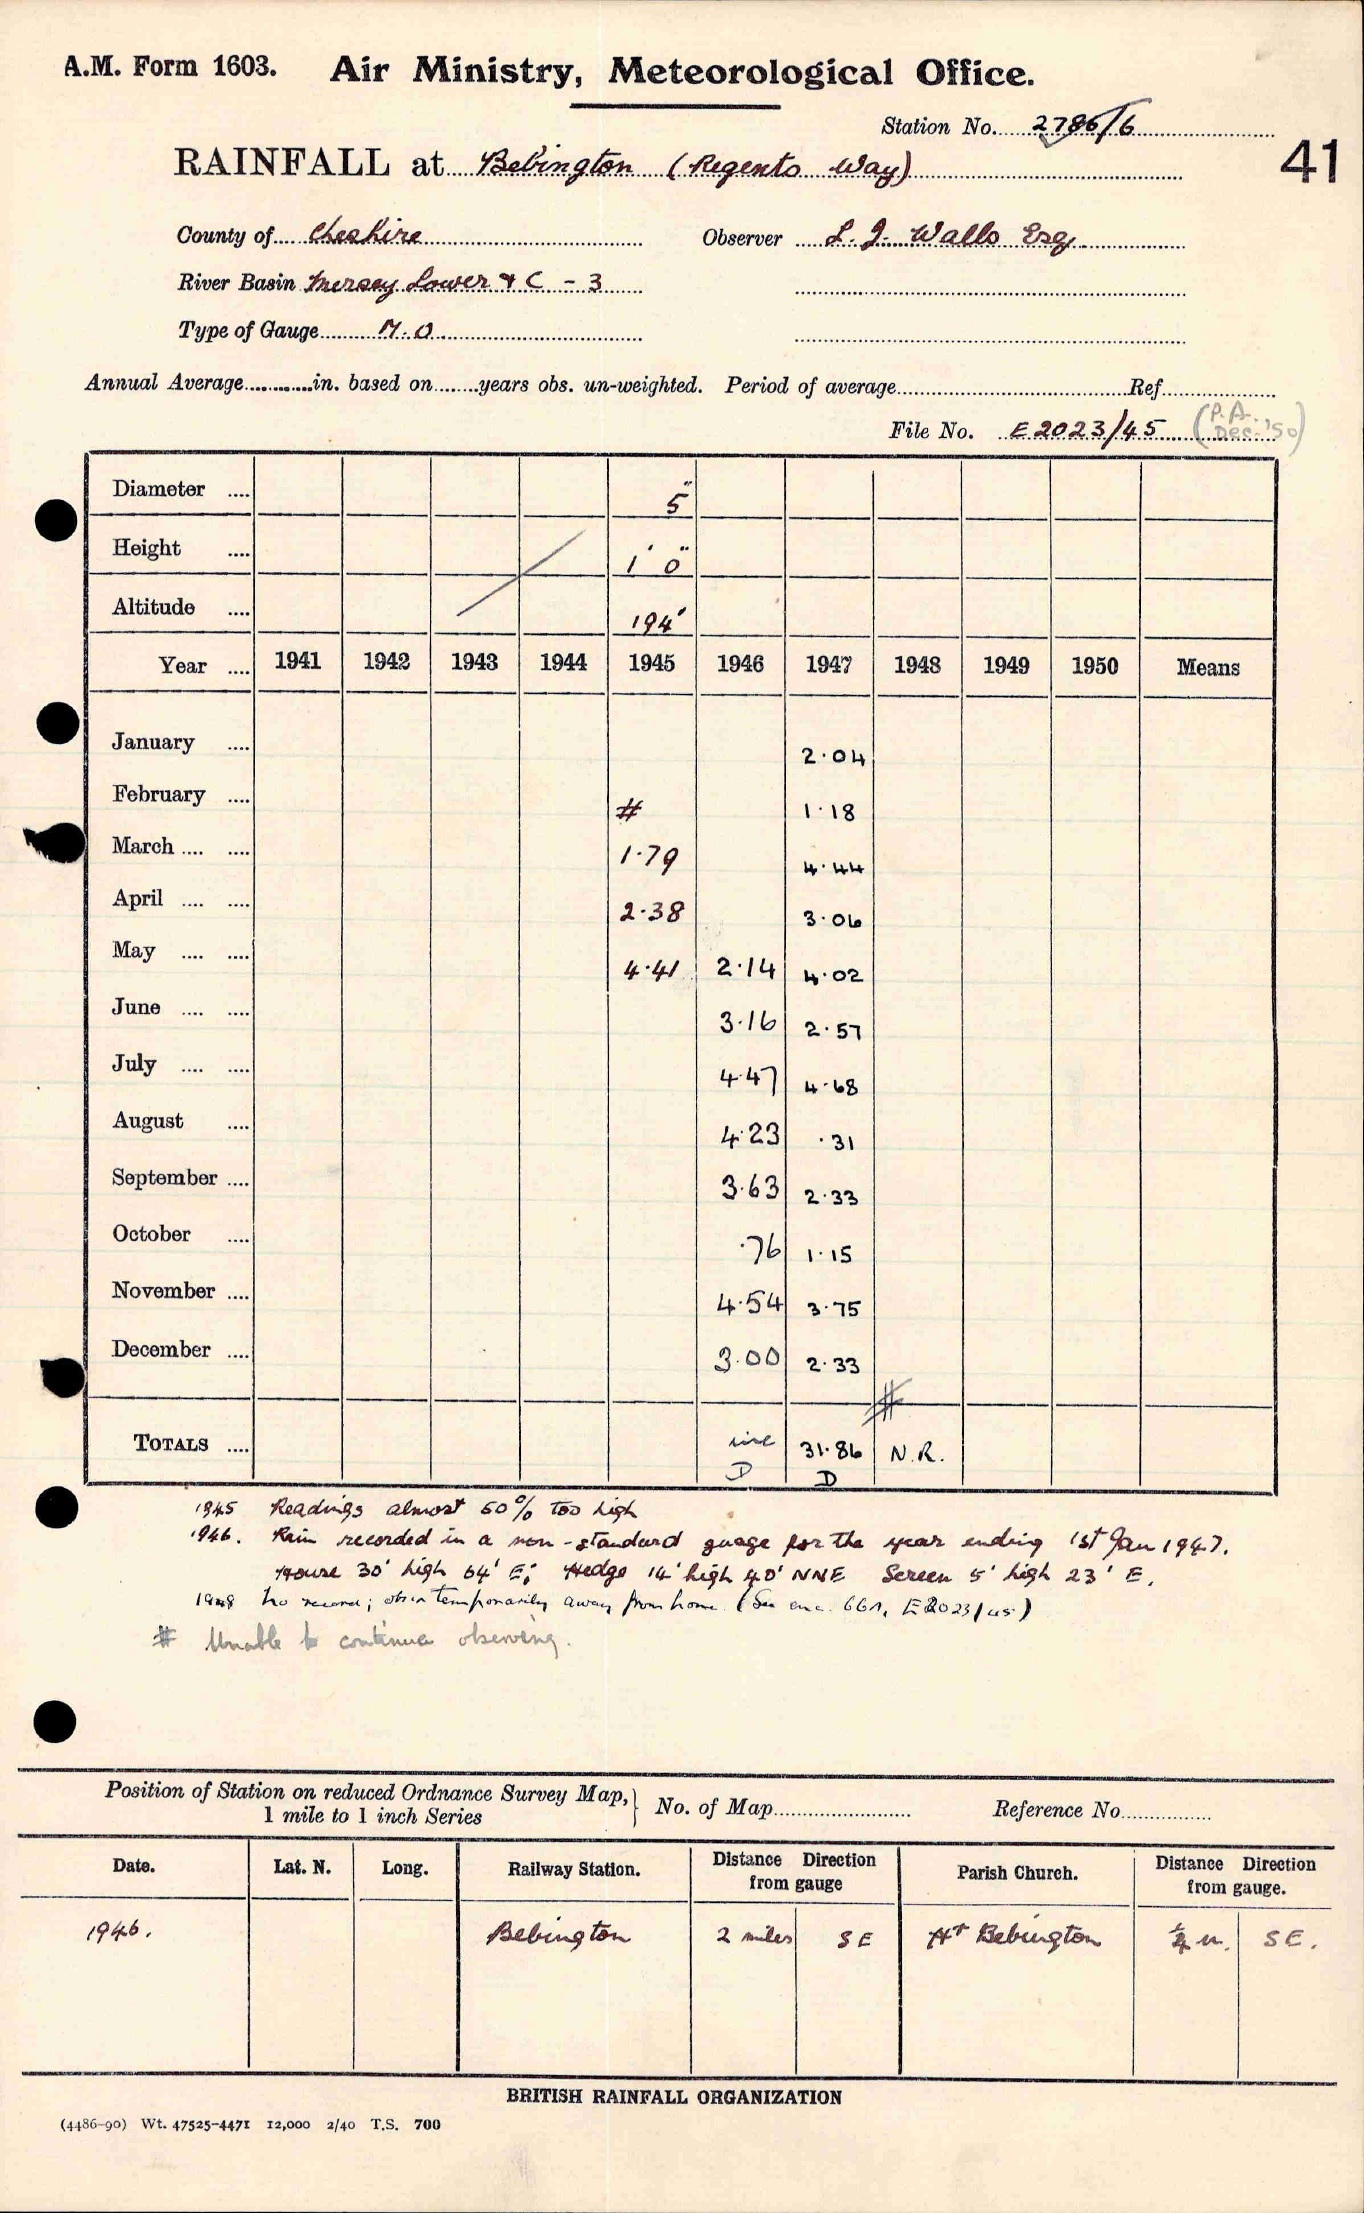 A.M. Form 1603. Air Ministry, Meteorological Office.
Station No. 2786/6
41
RAINFALL at Bebington (Regents Way)
County of Cheshire Observer L. J. Walls Esq.
River Basin Mersey Lower & C - 3
Type of Gauge M.O.
Annual Average............in. based on........years obs. un-weighted. Period of average............Ref............
File No. E2023/45 (P.A. Dec. '50)
Diameter .... 5"
Height .... 1' 0"
Altitude .... 194'
Year .... 1941 1942 1943 1944 1945 1946 1947 1948 1949 1950 Means
January .... 2.04
February .... # 1.18
March .... .... 1.79 4.44
April .... .... 2.38 3.06
May .... .... 4.41 2.14 4.02
June .... .... 3.16 2.57
July .... .... 4.47 4.68
August .... 4.23 .31
September .... 3.63 2.33
October .... .76 1.15
November .... 4.54 3.75
December .... 3.00 2.33
#
TOTALS .... inc 31.86 N.R.
D D
1945 Readings almost 50% too high
1946. Rain recorded in a non-standard guage for the year ending 1st Jan 1947.
House 30' high 64' E; Hedge 14' high 40' NNE Screen 5' high 23' E.
1948 No record; obsr temporarily away from home. (See enc. 66A, E2023/45)
# Unable to continue observing.
Position of Station on reduced Ordnance Survey Map, 1 mile to 1 inch Series } No. of Map............ Reference No............
Date. Lat. N. Long. Railway Station. Distance Direction from gauge Parish Church. Distance Direction from gauge.
1946. Bebington 2 miles SE Hr Bebington ¼ m. SE.
BRITISH RAINFALL ORGANIZATION
(4486-90) Wt. 47525-4471 12,000 2/40 T.S. 700